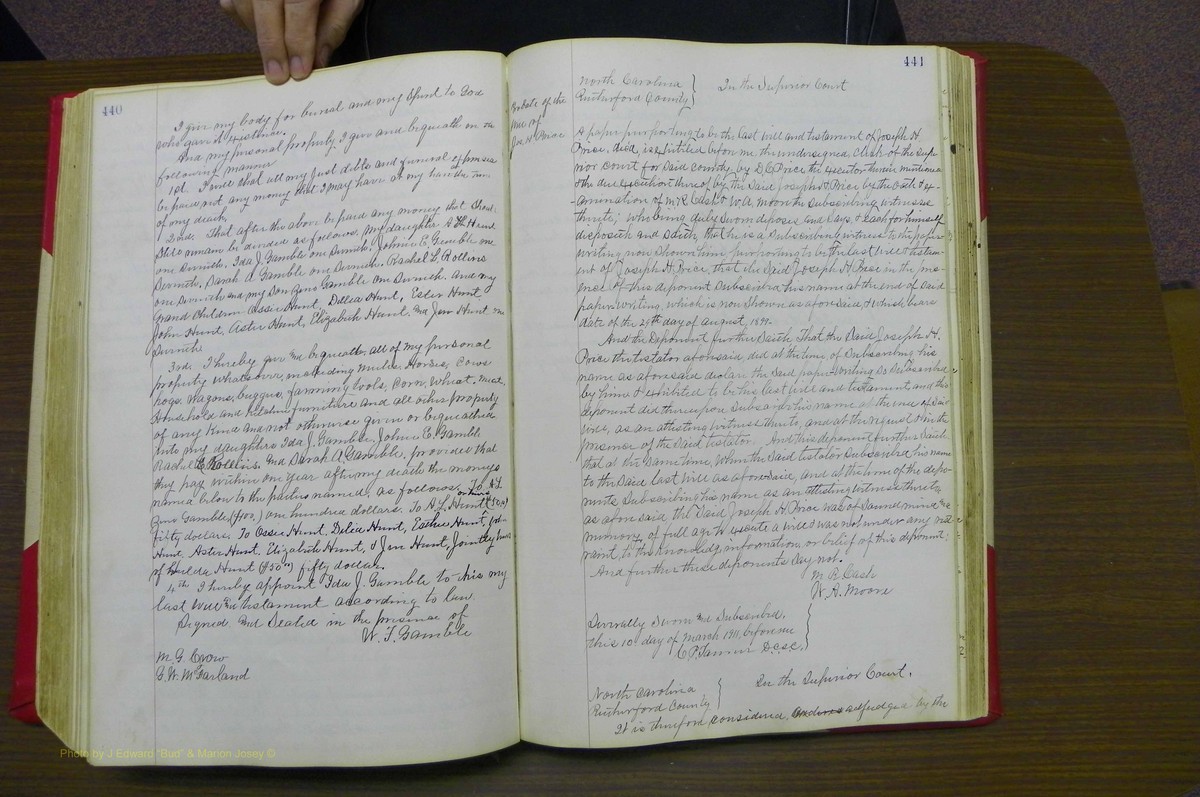 440
I give my body for burial and my Spirit to God
who gave it existence.
And my personal property, I give and bequeath in the
following manner
1st. I will that all my just debts and funeral expenses
be paid out any money that I may have at my
of my death.
2nd. That after the above be paid any money that Should
Still remain be divided as follows. My daughter A.L. Hunt
one Seventh, Ida J. Gamble one Seventh, Johnie E. Gamble one
Seventh, Sarah A Gamble one Seventh, Rachel L. Rollins
one Seventh and my Son Zeno Gamble one Seventh. And my
Grand Children Ossie Hunt, Delia Hunt, Ester Hunt
John Hunt, Aster Hunt, Elizabeth Hunt, and Jen Hunt one
Seventh
3rd. I hereby give and bequeath, all of my personal
property whatsoever, including Mules, Horses, Cows
Hogs, Wagons, buggies, farming tools, Corn, Wheat, Meat,
Household and Kitchen furniture and all other property
of any kind and not otherwise given or bequeathed
unto my daughters Ida J. Gamble, Johnie E. Gamble
Rachel Rollins, and Sarah A Gamble, provided that
they pay within one year after my death the moneys
named below to the parties named, as follows. To
Zeno Gamble, ($100,) one hundred dollars. To A.L. Hunt
fifty dollars. To Ossie Hunt, Delia Hunt, Esther Hunt, John
Hunt, Aster Hunt, Elizabeth Hunt, & Jen Hunt, Jointly heirs
of Hulda Hunt ($50) fifty dollars.
4th I hereby appoint Ida J. Gamble to this my
last Will and testament according to law.
Signed and Sealed in the presence of
W. T. Gamble
M. G. Crow
G. W. McFarland
441
Probate of the
Will of
Jos. H. Price
North Carolina } In the Superior Court
Rutherford County }
A paper purporting to be the last will and testament of Joseph H.
Price, decd, is exhibited before me, the undersigned, Clerk of the Supe-
rior court for Said county, by D.C. Price the executor therein mentioned
& the due execution thereof by the Said Joseph H Price by the Oath & ex-
-amination of M.R. Cash & W.A. Moore the Subscribing witnesses
thereto; who being duly Sworn deposes and Says, & each for himself
deposeth and Saith, that he is a Subscribing witness to the paper
writing now Shown him, purporting to be the last will & testam-
ent of Joseph H. Price, that the Said Joseph H. Price in the pres-
ence of this deponent Subscribed his name at the end of Said
paper writing, which is now Shown as aforesaid, & which bears
date of the 29th day of August,
And the Deponent further Saith, That the Said Joseph H.
Price the testator aforesaid, did at the time of Subscribing his
name as aforesaid declare the Said paper writing So Subscribed
by him & exhibited to be his last will and testament, and this
deponent did thereupon Subscribe his name at the end of Said
will, as an attesting witness thereto, and at the request & in the
presence of the Said testator. And this deponent further Saith
that at the Same time, When the Said testator Subscribed his name
to the Said last will as aforesaid, and at the time of the depo-
nents Subscribing his name as an attesting witness thereto,
as aforesaid, the Said Joseph H. Price was of Sound mind and
memory, of full age to execute a will & was not under any rest-
raint, to the knowledge, information, or belief of this deponent;
And further these deponents Say not.
M. R. Cash
W. A. Moore
Severally Sworn and Subscribed,
this 10 day of March 1911, before me
C.P. Tanner D.C.S.C.
North Carolina } In the Superior Court.
Rutherford County }
It is therefore considered, adjudged by the
Photo by J Edward "Bud" & Marion Josey ©